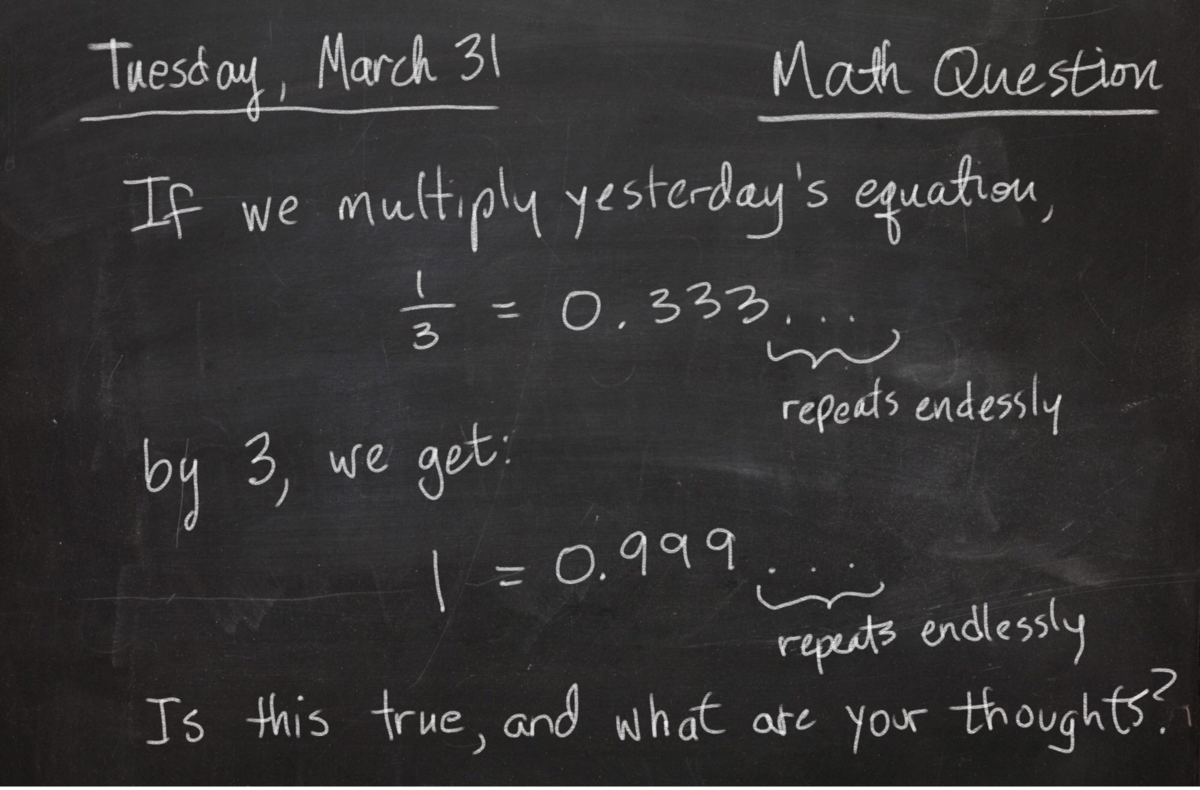 Tuesday, March 31
Math Question
If we multiply yesterday's equation,
1/3 = 0.333...
repeats endessly
by 3, we get:
1 = 0.999...
repeats endlessly
Is this true, and what are your thoughts?